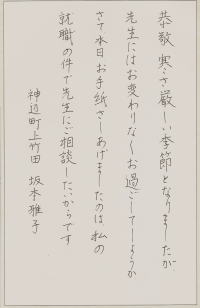 恭敬 寒さ厳しい季節となりましたが
先生にはお変わりなくお過ごしでしょうか
さて本日お手紙さしあげましたのは、私の
就職の件で先生にご相談したいからです
神辺町上竹田 坂本雅子